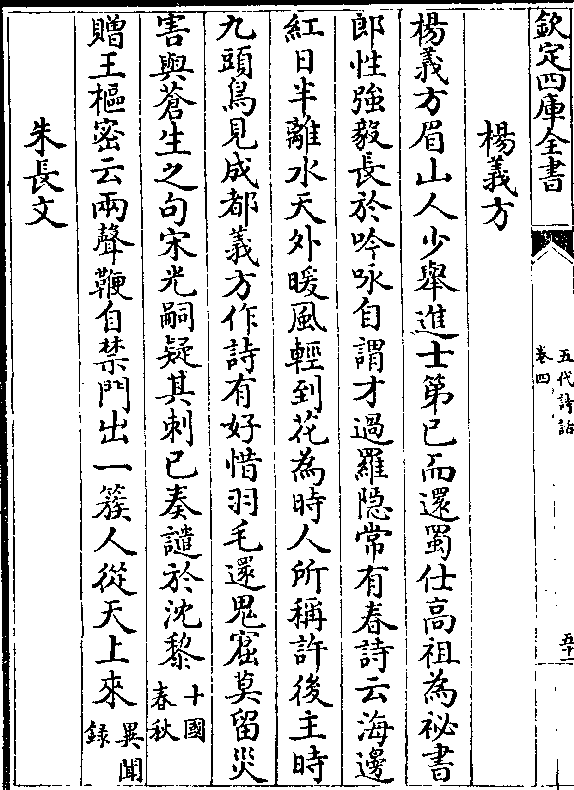 欽定四庫全書
五代詩話
卷四
五十二
楊義方
楊義方眉山人少舉進士第已而還蜀仕高祖為祕書
郎性強毅長於吟咏自謂才過羅隱常有春詩云海邊
紅日半離水天外暖風輕到花為時人所稱許後主時
九頭鳥見成都義方作詩有好惜羽毛還鬼窟莫留災
害與蒼生之句宋光嗣疑其刺已奏譴於沈黎十國春秋
贈王樞密云兩聲鞭自禁門出一簇人從天上來異聞録
朱長文